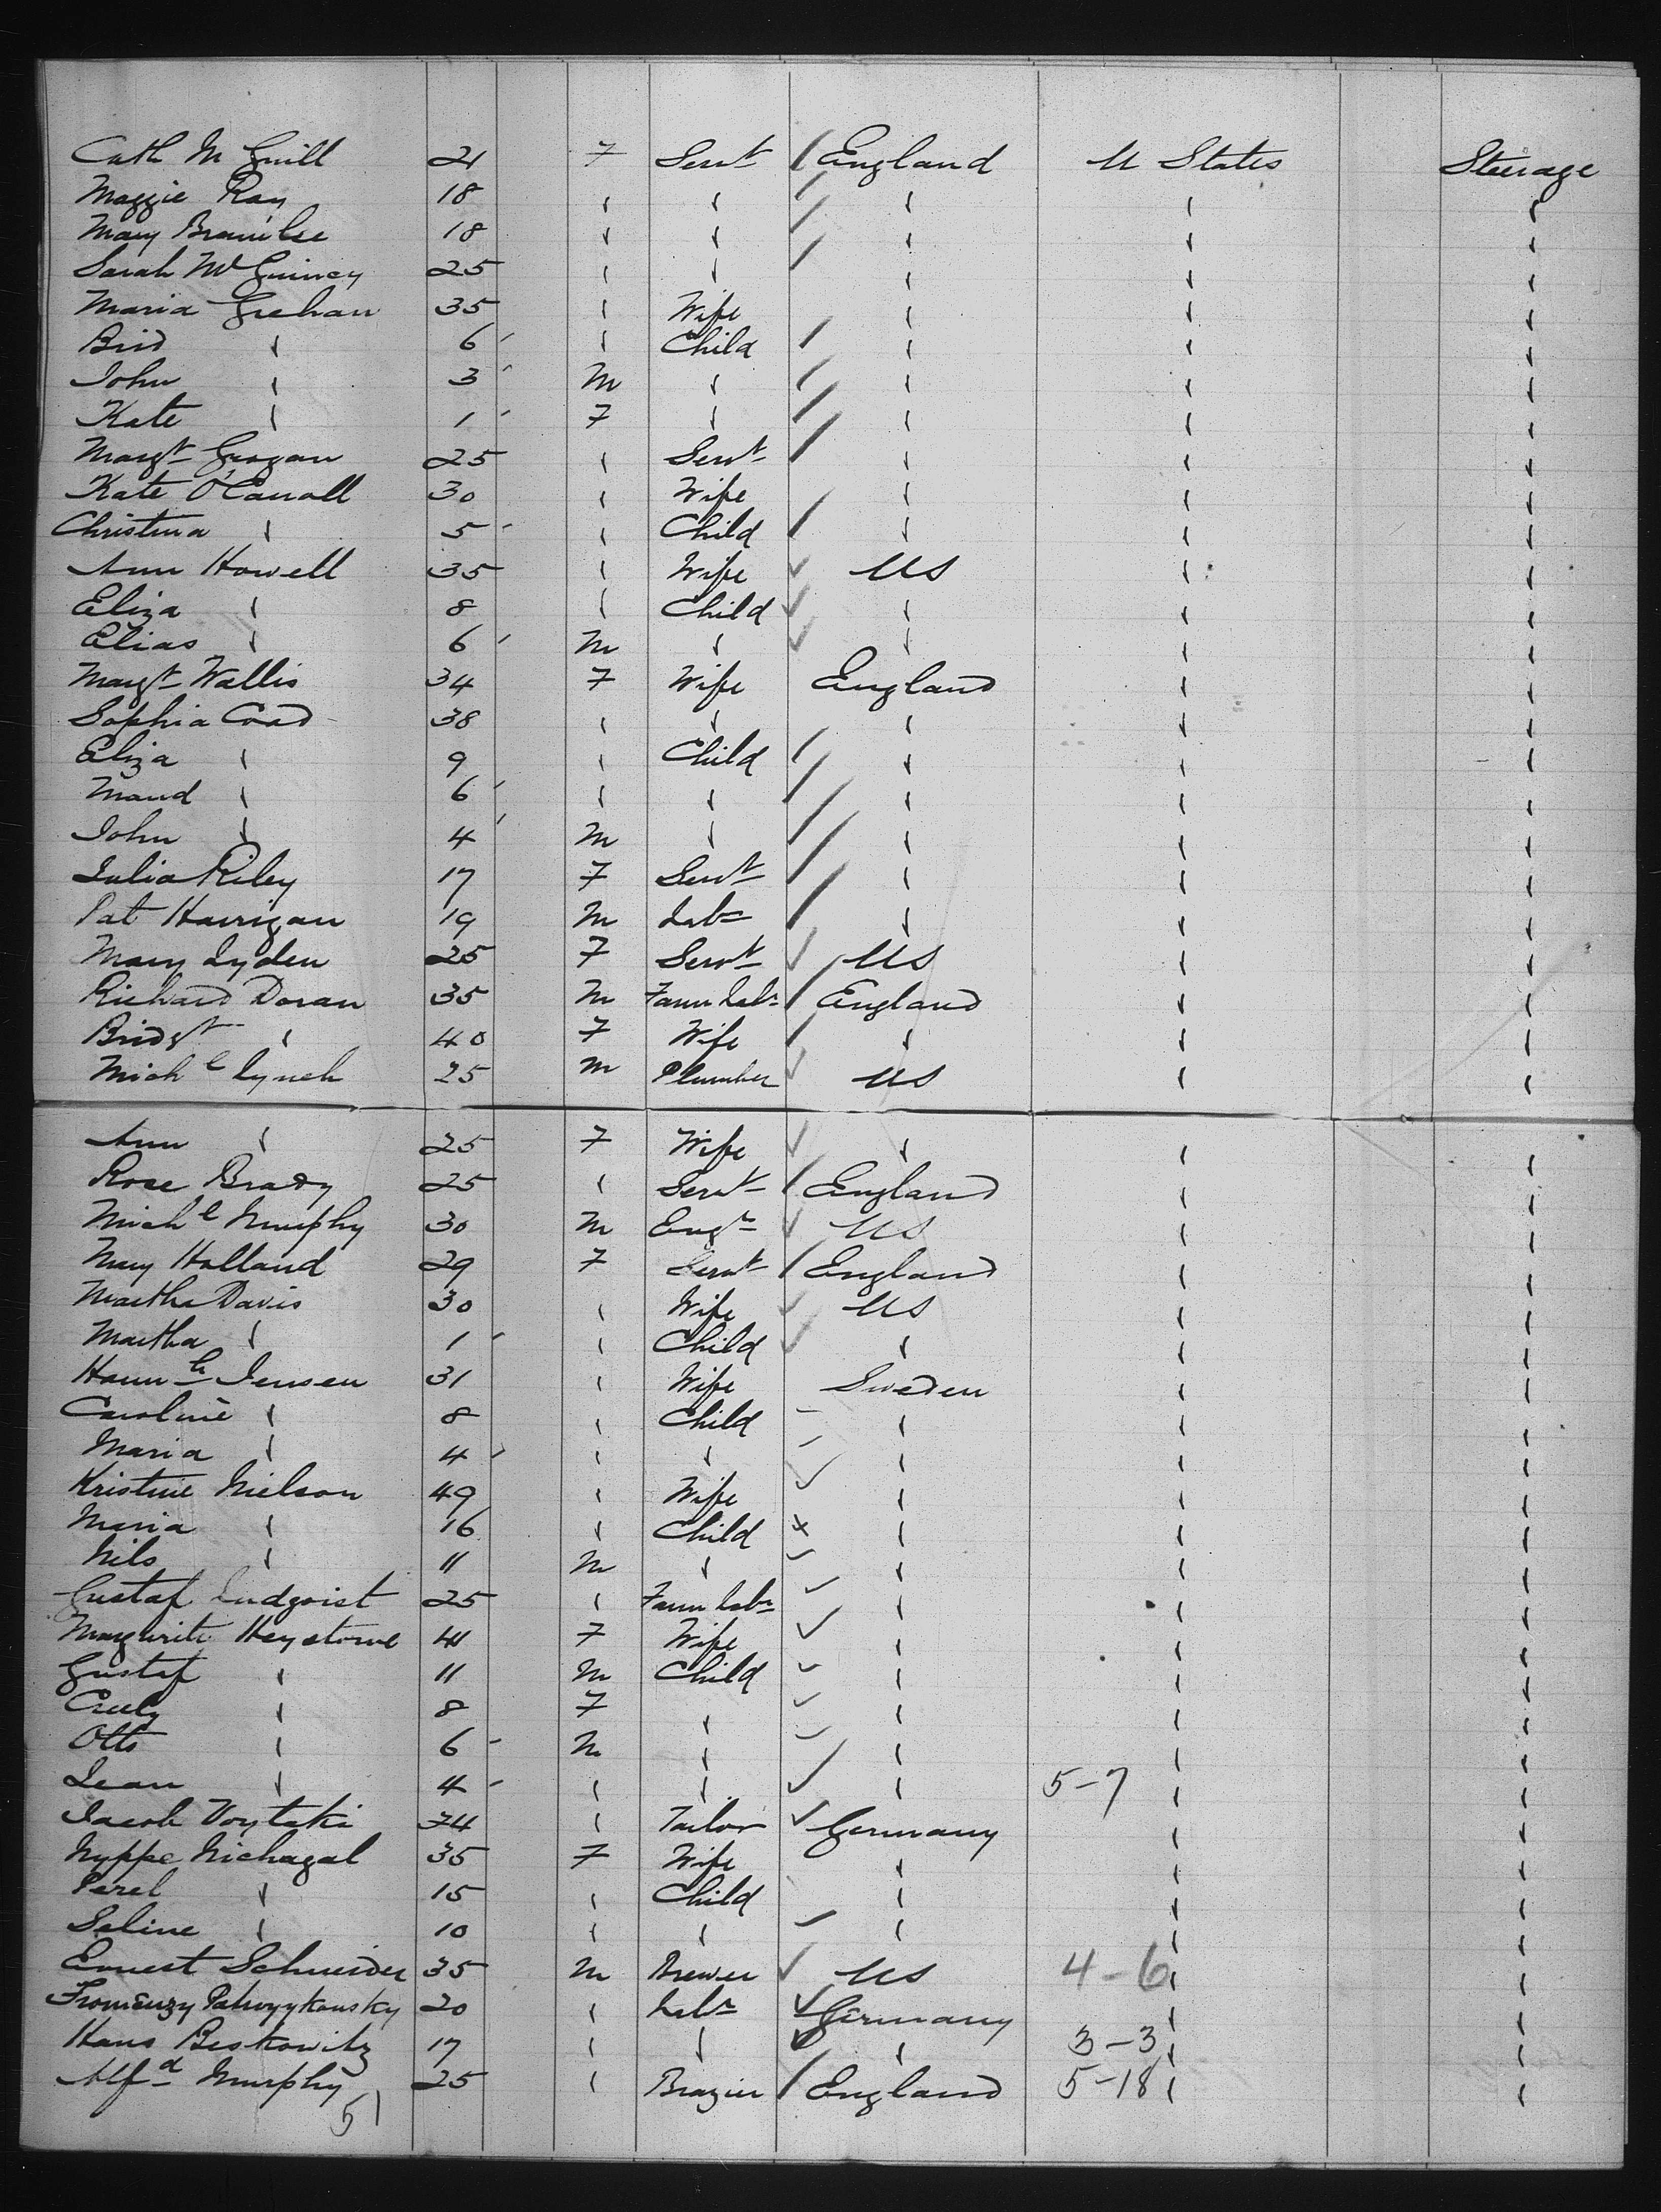 Cath McGuill 21 F Servt / England U States Steerage
Maggie Ray 18 " " / " " "
Mary 18 " " / " " "
Sarah McGuincy 25 " " / " " "
Maria Grehan 35 " Wife " " "
Brid " 6 ' " Child / " " "
John " 3 ' M " / " " "
Kate " 1 ' F " / " " "
Margt Grogan 25 " Servt / " " "
Kate O'Carroll 30 " Wife " " "
Christina " 5 - " Child / " " "
Ann Howell 35 " Wife ✓ US " "
Eliza " 8 " Child ✓ " " "
Elias " 6 ' M " ✓ " " "
Margt Wallis 34 F Wife England " "
Sophia Coad 38 " " " " "
Eliza " 9 " Child / " " "
Maud " 6 ' " " / " " "
John " 4 ' M " / " " "
Julia Riley 17 F Servt / " " "
Pat Harrigan 19 M Labr / " " "
Mary Lyden 25 F Servt ✓ US " "
Richard Doran 35 M Farm Labr / England " "
Bridgt " 40 F Wife / " " "
Michl Lynch 25 M Plumber ✓ US " "
Ann " 25 F Wife ✓ " " "
Rose Brady 25 " Servt / England " "
Michl Murphy 30 M Engr ✓ US " "
Mary Holland 29 F Servt / England " "
Martha Davis 30 " Wife ✓ US " "
Martha " 1 ' " Child ✓ " " "
Hannh Jensen 31 " Wife Sweden " "
Caroline " 8 " Child - " " "
Maria " 4 ' " " - " " "
Kristine Nielson 49 " Wife ✓ " " "
Maria " 16 " Child x " " "
Nils " 11 M " ✓ " " "
Gustaf Lindqvist 25 " Farm Labr ✓ " " "
Margurite 41 F Wife ✓ " " "
Gustaf " 11 M Child ✓ " " "
" 8 F " ✓ " " "
Otto " 6 - M " ✓ " " "
Jean " 4 - " " ✓ " 5-7 " "
Jacob Voytski 34 " Tailor ✓ Germany " "
Nyppe Nichagal 35 F Wife " " "
Perel " 15 " Child " " "
Seline " 10 " " ✓ " " "
Ernest Schneider 35 M Brewer ✓ US 4-6 " "
20 " Labr ✓ Germany " "
Hans Beskowitz 17 " " ✓ " 3-3 " "
Alfd Murphy 25 " Brazier / England 5-18 " "
51